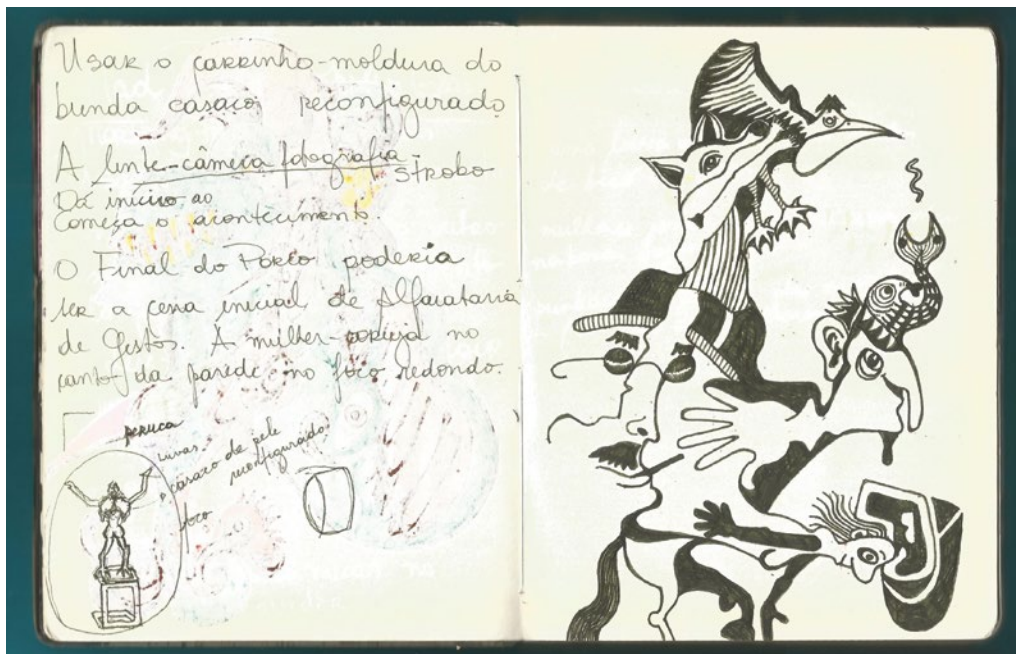 Usar o carrinho-moldura do
bunda casaco, reconfigurado
A lente-câmera fotografia -
strobo
Dá início, ao
Começa o acontecimento.
O Final do Porco poderia
ser a cena inicial de Alfaiataria
de Gestos. A mulher-coruja no
canto da parede no foco redondo.
peruca
luvas
casaco de pele
reconfigurado
foco